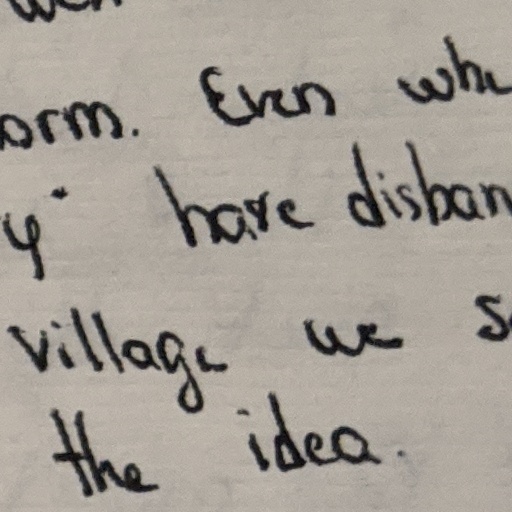 orm. Even whe
y" have disban
village we s
the idea.